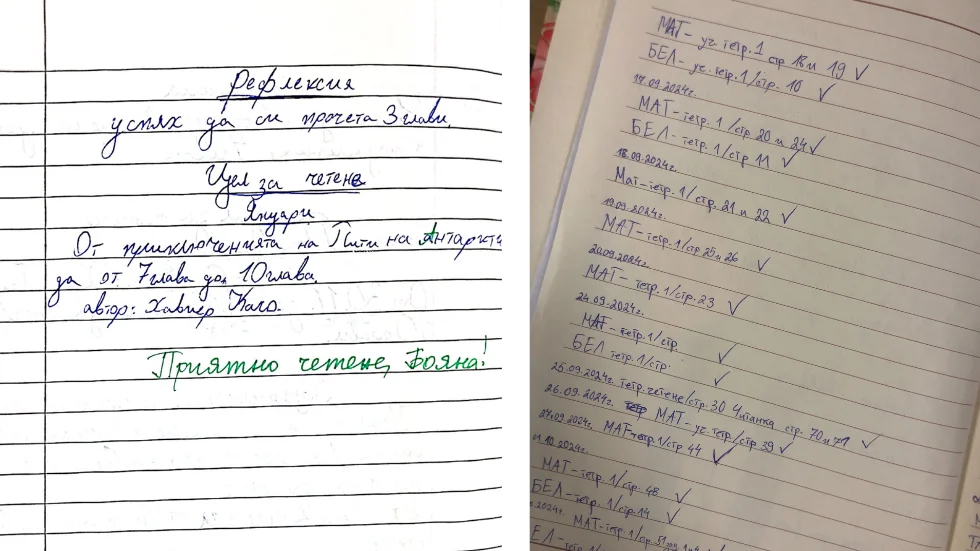 Рефлексия
успях да си прочета 3 глави.
Цел за четене
Януари
От приключенията на Пити на Антаркти
да от 7 глава до 10 глава.
автор: Хавиер
Приятно четене, Бояна!
МАТ - уч. тетр. 1 стр 18 и 19 ✓
БЕЛ - уч. тетр. 1/стр. 10 ✓
17.09.2024г.
МАТ - тетр. 1/стр 20 и 24 ✓
БЕЛ - тетр. 1/стр 11 ✓
18.09.2024г.
Мат - тетр. 1/стр. 21 и 22 ✓
19.09.2024г.
МАТ - тетр. 1/стр 25 и 26 ✓
20.09.2024г.
МАТ - тетр. 1/стр. 23 ✓
24.09.2024г.
МАТ - тетр. 1/стр. ✓
БЕЛ тетр. 1/стр. ✓
25.09.2024г. тетр. четене/стр. 30 Читанка стр. 70 и 71 ✓
26.09.2024г. МАТ - уч. тетр/стр 39 ✓
27.09.2024г. МАТ - тетр. 1/стр 44 ✓
01.10.2024г.
МАТ - тетр. 1/стр. 48 ✓
БЕЛ - тетр. 1/стр. 14 ✓
.2024г. МАТ - тетр. 1/стр. 51
БЕЛ - тетр. 1/